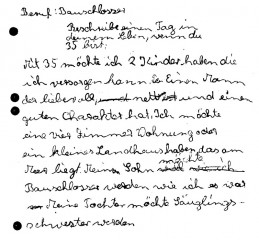 Beruf: Bauschlosser
Beschreibe einen Tag in
deinem Leben, wenn du
35 bist.
Mit 35 möchte ich 2 Kinder haben die
ich versorgen kann. Es Einen Mann
der lieb ist, und nett ist und einen
guten Charakter hat. Ich möchte
eine vier Zimmer Wohnung oder
ein kleines Landhaus haben, das am
Meer liegt. Mein Sohn soll möchte
Bauschlosser werden wie ich es war
Meine Tochter möcht Säuglings-
schwester werden